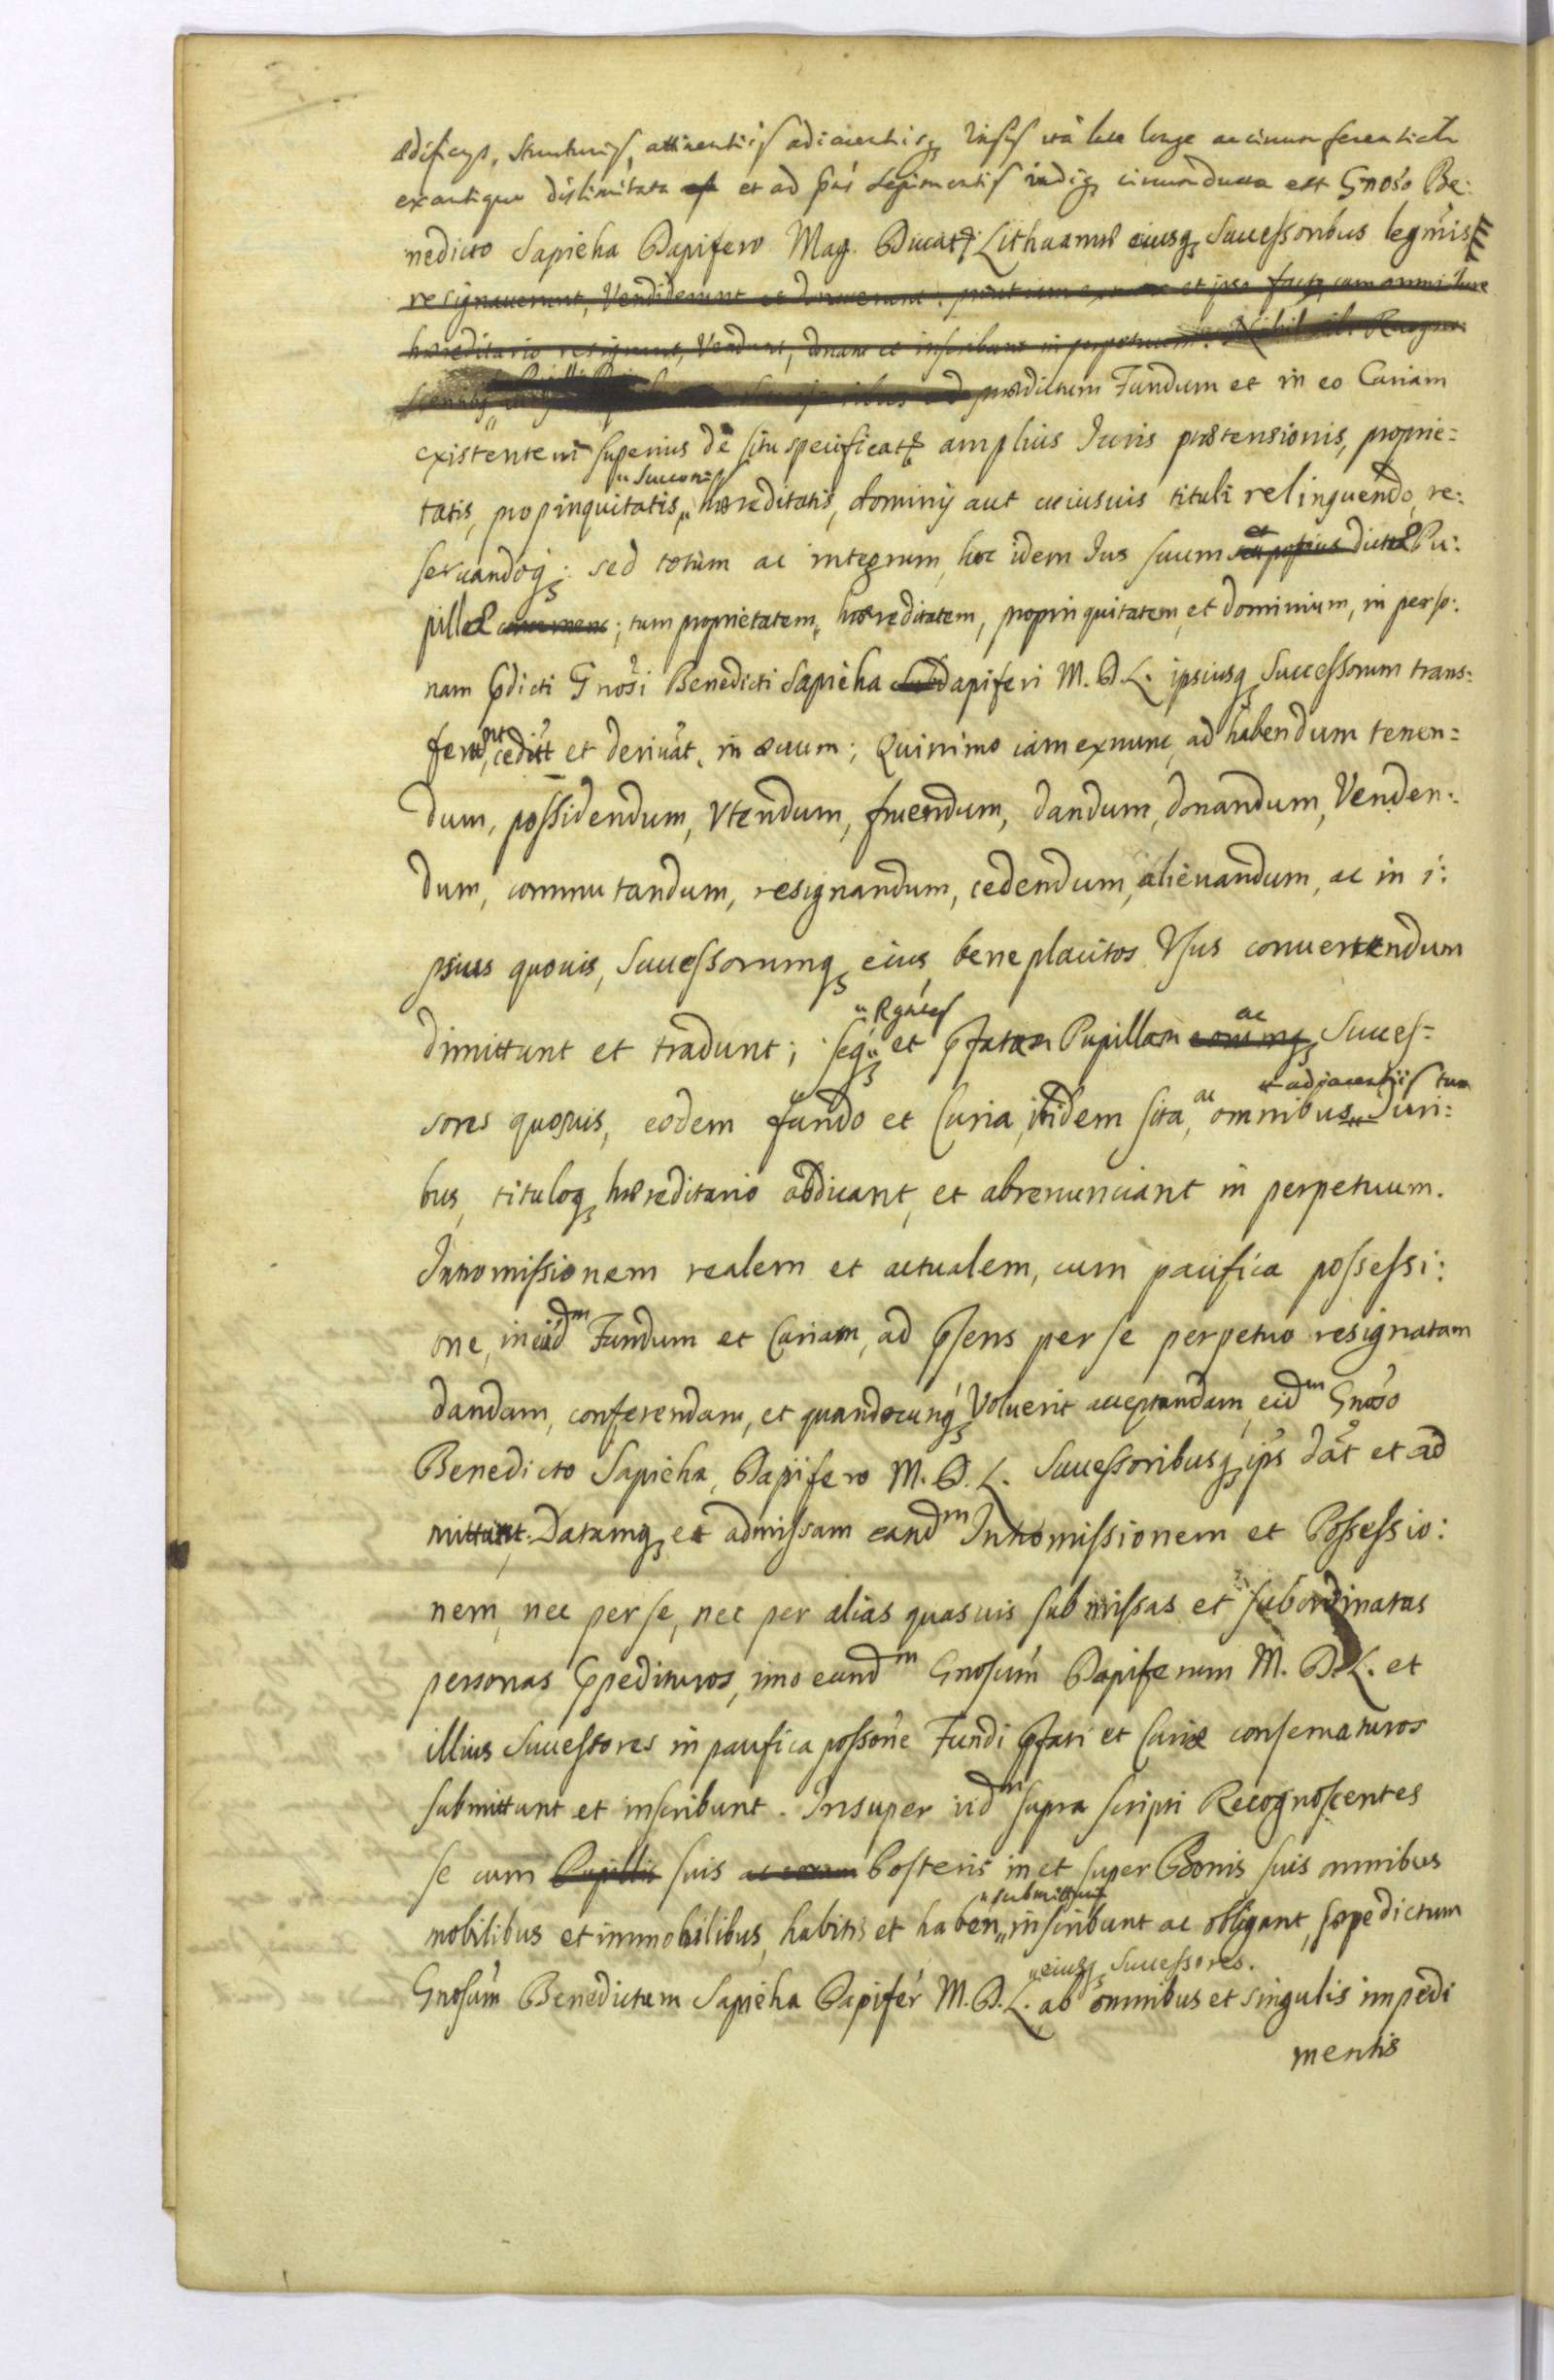 ædificys, structuris, attinentiis adiacentisq ita late longe ac circumferentialr
ex antiquo dislimitata et ad pns sepimentis undiq circumducta est Gnoso Be:
nedicto Sapieha Dapifero Mag. Ducat9 Lithuaniæ eiusq Successoribus legmis
resignauerunt, Vendiderunt et donauerunt: prout iam ex et ipso facto, cum omni Iure
hæreditario resignant, Vendunt, donant et inscribunt in perpetuum. Nihil sibi Recogno
prædictum Fundum et in eo Curiam
existentem superius de situ specificatæ amplius Iuris prætensionis, proprie=
"Succonis
tatis, propinquitatis," hæreditatis, dominij aut cuiusuis tituli relinquendo, re:
et
seruandoq: sed totum ac integrum, hoc idem Ius suum seu potius dictæ Pu:
pillæ; tum proprietatem, hæreditatem, propinquitatem, et dominium, in perso:
nam pdicti Gnosi Benedicti Sapieha Subdapiferi M. D. L. ipsiusq Successorum trans:
ferunt, cedut et deriuat, in æuum; Quinimo iam exnunc, ad habendum tenen=
dum, possidendum, Vtendum, fruendum, dandum, donandum, Venden:
dum, commutandum, resignandum, cedendum, alienandum, ac in i:
psius quouis, Successorumq eius, beneplacitos Vsus conuertendum
"Rgntes ac
dimittunt et tradunt; seq" et pfatam Pupillam eorumq Succes=
ac "adjacentiis tum
sores quosuis, eodem fundo et Curia, ibidem sita, omnibus" Iuri:
bus, tituloq hæreditario abdicant, et abrenunciant in perpetuum.
Intromissionem realem et actualem, cum pacifica possessi:
one, in eudm Fundum et Curiam, ad psens per se perpetuo resignatam
dandam, conferendam, et quandocunq Voluerit acceptandam, eidm Gnoso
Benedicto Sapieha, Dapifero M. D. L. Successoribusq ips dat et ad
mittunt. Datamq et admissam eandm Intromissionem et Possessio:
nem, nec per se, nec per alias quasuis submissas et subordinatas
personas ppedituros, imo eundm Gnosum Dapiferum M. D. L. et
illius Successores in pacifica possone Fundi pfati et Curiæ conseruaturos
submittunt et inscribunt. Insuper iidm supra scripti Recognoscentes
se cum Pupillis suis ac eorum Posteris in et super Bonis suis omnibus
"submittunt
mobilibus et immobilibus, habitis et haben," inscribunt ac obligant, sæpedictum
"eiusq Successores.
Gnosum Benedictum Sapieha Dapifer M. D. L. ab omnibus et singulis impedi
mentis